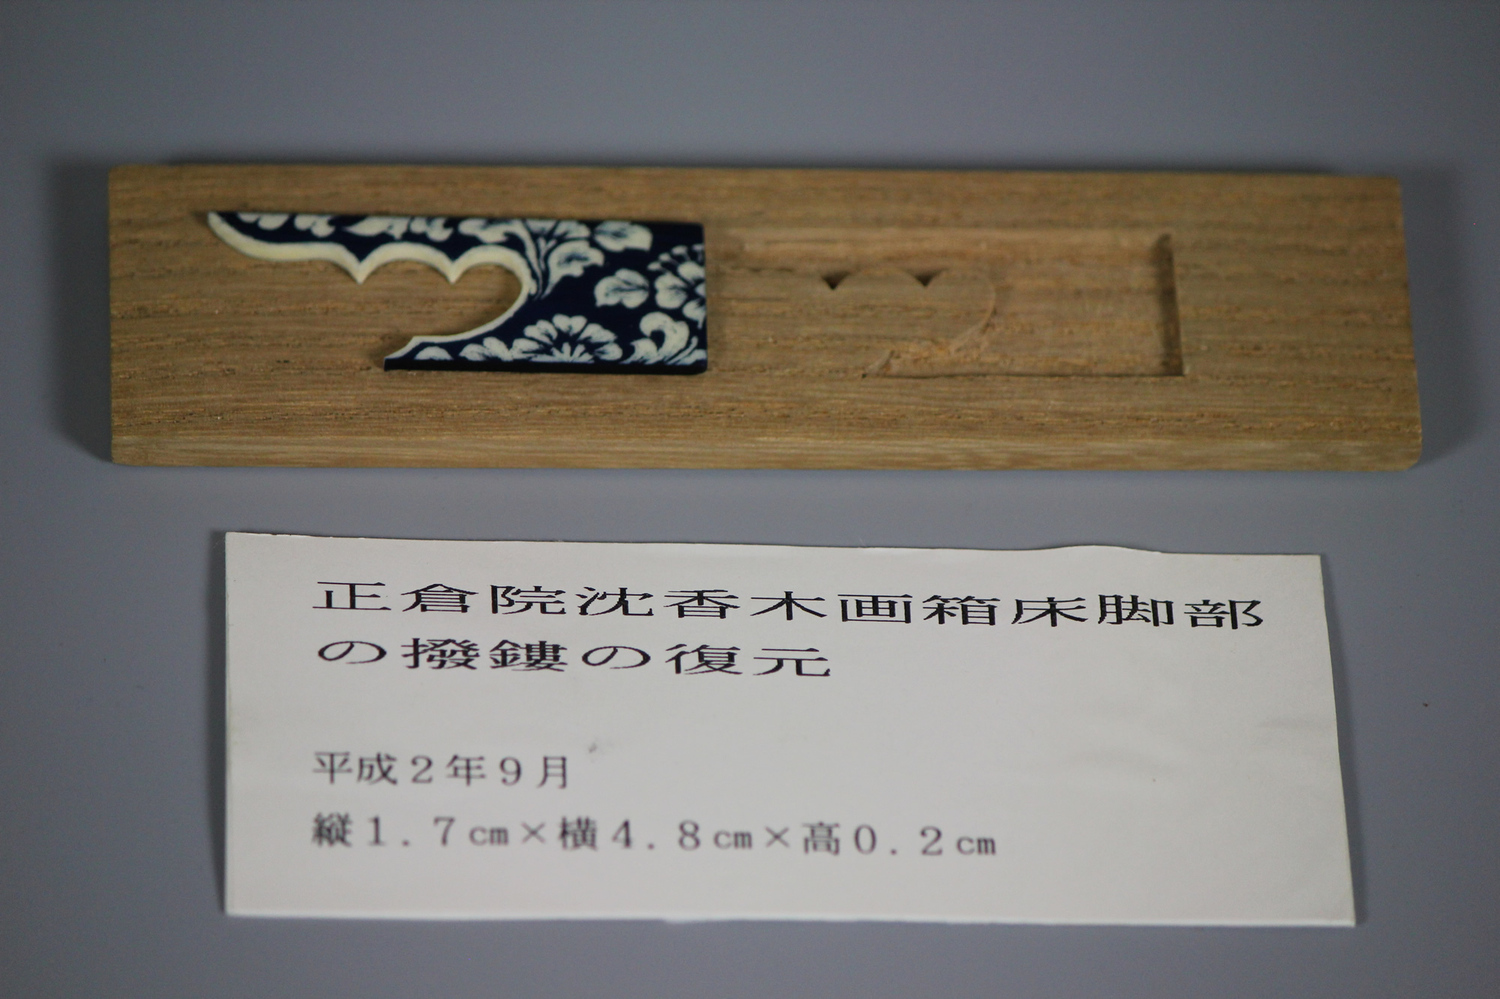 正倉院沈香木画箱床脚部
の撥鏤の復元
平成２年９月
縦１．７㎝×横４．８㎝×高０．２㎝